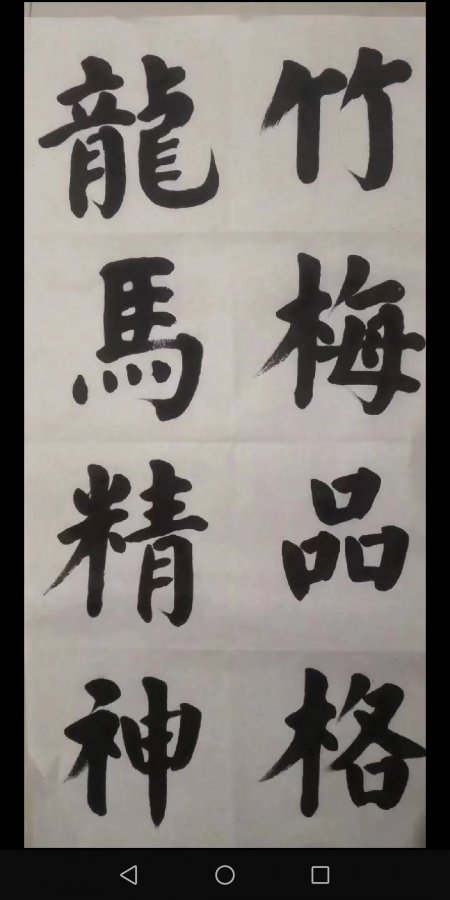 竹梅品格
龍馬精神